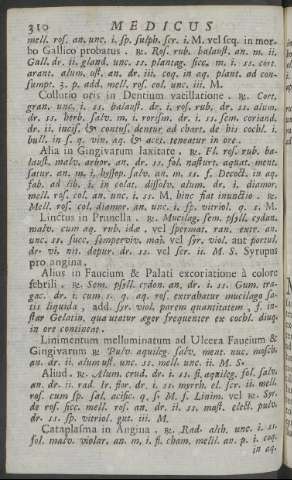 310 MEDICUS
mell. ros. an. unc. i. sp. sulph. scr. i. M. vel seq. in mor-
bo Gallico probatus. ℞. Ros. rub. balaust. an. m. ii.
Gall. dr. ii. gland. unc. ss. plantag. sicc. m. i. ss. cort.
arant. alum. ust. an. dr. iii. coq. in aq. plant. ad con-
sumpt. 3. p. add. mell. ros. col. unc. iii. M.
Collutio oris in Dentium vacillatione. ℞. Cort.
gran. unc. i. ss. balaust. dr. i. ros. rub. dr. ss. alum.
dr. ss. herb. salv. m. i. rorism. dr. i. ss. sem. coriand.
dr. ii. incis. & contus. dentur ad chart. de his cochl. i.
bull. in s. q. vin. aq. & acet. teneatur in ore.
Alia in Gingivarum laxitate. ℞. Fl. ros. rub. ba-
laust. malv. arbor. an. dr. ss. fol. nasturt. aquat. ment.
satur. an. m. i. hyssop. salv. an. m. ss. f. Decoct. in aq.
fab. ad lib. i. in colat. dissolv. alum. dr. i. diamor.
mell. ros. col. an. unc. i. ss. M. hinc fiat inunctio. ℞.
Mell. ros. col. diamor. an. unc. i. sp. vitriol. q. s. M.
Linctus in Prunella. ℞. Mucilag. sem. psyll. cydon.
malv. cum aq. rub. idæ, vel spermat. ran. extr. an.
unc. ss. succ. semperviv. maj. vel syr. viol. aut portul.
dr. vi. nit. depur. dr. ss. vel scr. ii. M. S. Syrupus
pro angina.
Alius in Faucium & Palati excoriatione à colore
febrili. ℞. Sem. psyll. cydon. an. dr. i. ss. Gum. tra-
gac. dr. i. cum s. q. aq. ros. extrabatur mucilago sa-
tis liquida, add. syr. viol. parem quantitatem, f. in-
star Gelatin. qua utatur æger frequenter ex cochl. diuq.
in ore contineat.
Linimentum melluminatum ad Ulcera Faucium &
Gingivarum ℞ Pulv. aquileg. salv. ment. nuc. mosch.
an. dr. ii. alum ust. unc. ss. mell. unc. ii. M. S.
Aliud. ℞. Alum. crud. dr. i. ss. fl. aquileg. fol. salv.
an. dr. ii. rad. Ir. flor. dr. i. ss. myrrh. el. scr. ii. mell.
ros. cum sp. sal. acific. q. s. M. f. Linim. vel ℞. Syr.
de ros. sicc. mell. ros. an. dr. ii. ss. mast. elect. pulv.
dr. ss. sp. vitriol. gut. iii. M.
Cataplasma in Angina. ℞. Rad. alth. unc. i. ss.
fol. malv. violar. an. m, i. fl. cham. melil. an. p. i. coq.
in aq.